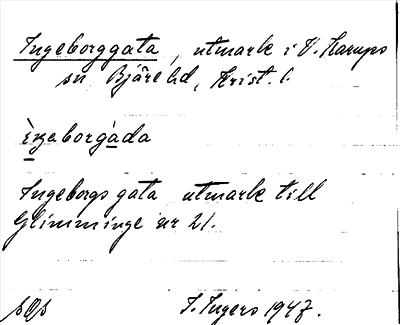 Ingeborggata, utmark i V. Karups
sn Bjäre hd, Krist. l.
ìŋeborgàda
Ingeborgs gata utmark till
Glimminge nr 21.
I. Ingers 1947.